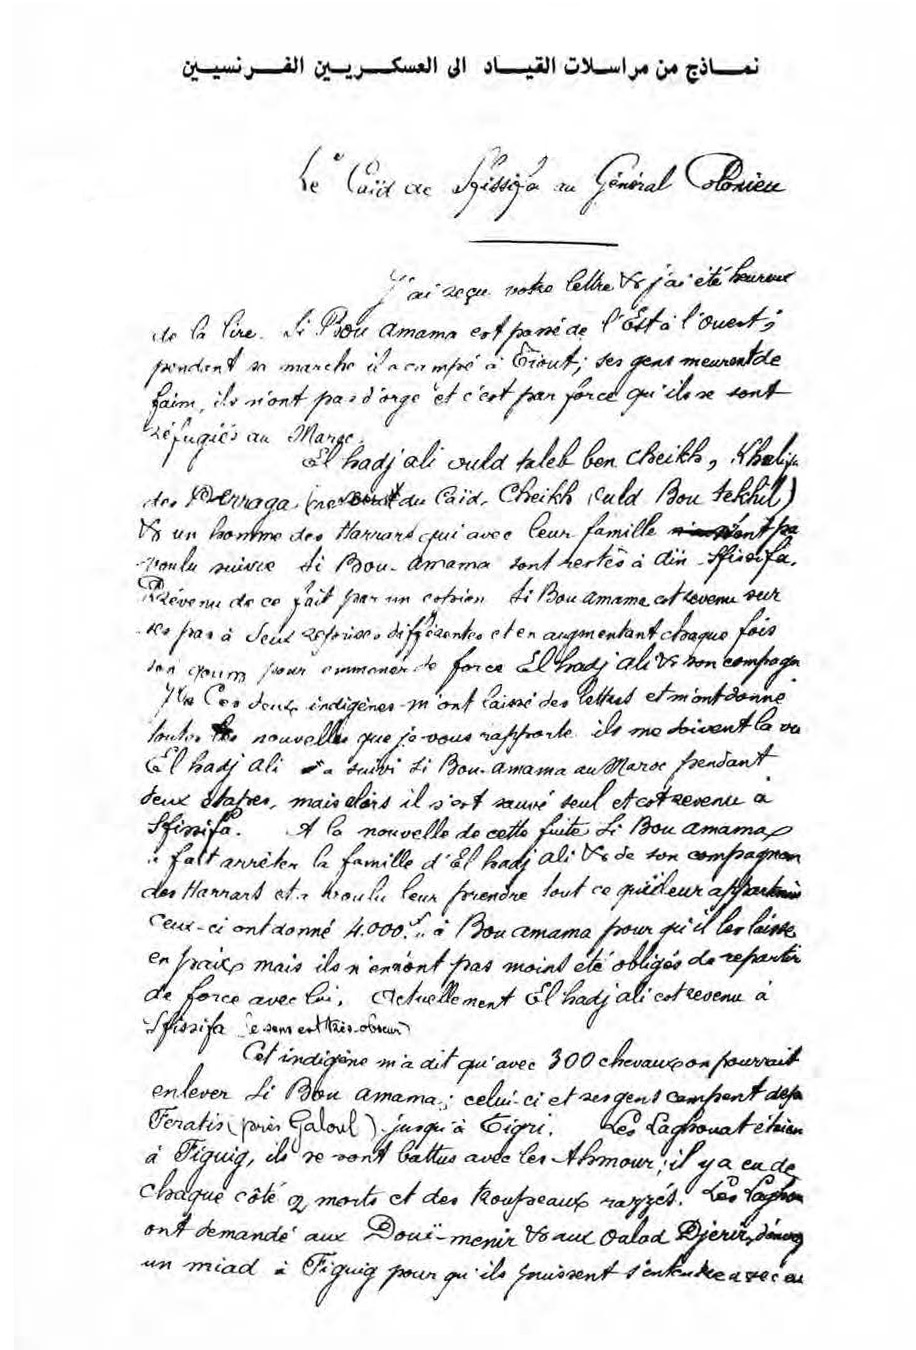 نمـــاذج من مراســلات القيـــاد الى العسكـــريـــين الفـــرنسيـــين
Le Caïd de Sfissifa au Général Colonieu
J'ai reçu votre lettre & j'ai été heureux
de la lire. Si Bou amama est passé de l'Est à l'ouest;
pendant sa marche il a campé à Tiout; ses gens meurent de
faim, ils n'ont pas d'orge et c'est par force qu'ils se sont
réfugiés au Maroc.
El hadj ali ould taleb ben cheikh, Khalifa
des Derraga du Caïd Cheikh ould Bou tekhil)
& un homme des Harrars qui avec leur famille n'ont pa
voulu suivre Si Bou-amama sont restés à Aïn-Sfissifa.
Prévenu de ce fait par un espion Si Bou amama est revenu sur
ses pas à deux reprises différentes et en augmentant chaque fois
son goum pour emmener de force El hadj ali & son compagn
Ces deux indigènes m'ont laissé des lettres et m'ont donné
toutes les nouvelles que je vous rapporte ils me doivent la vie
El hadj ali a suivi Si Bou-amama au Maroc pendant
deux étapes, mais alors il s'est sauvé seul et est revenu à
Sfissifa. A la nouvelle de cette fuite Si Bou amama
a fait arrêter la famille d'El hadj ali & de son compagnon
des Harrars et a voulu leur prendre tout ce qui leur appartenait
Ceux-ci ont donné 4.000f à Bou amama pour qu'il les laisse
en paix mais ils n'en ont pas moins été obligés de repartir
de force avec lui. Actuellement El hadj ali est revenu à
Sfissifa (le sens est très-obscur)
Cet indigène m'a dit qu'avec 300 chevaux on pourrait
enlever Si Bou amama; celui-ci et ses gens campent de
Feratis (près Galoul) jusqu'à Tigri. Les Laghouat étaien
à Figuig, ils se sont battus avec les Ahmour; il y a eu de
chaque côté 2 morts et des troupeaux razzés. Les Laghou
ont demandé aux Douï-menir & aux Oulad Djerir, d'envoy
un miad à Figuig pour qu'ils puissent s'entendre avec eu